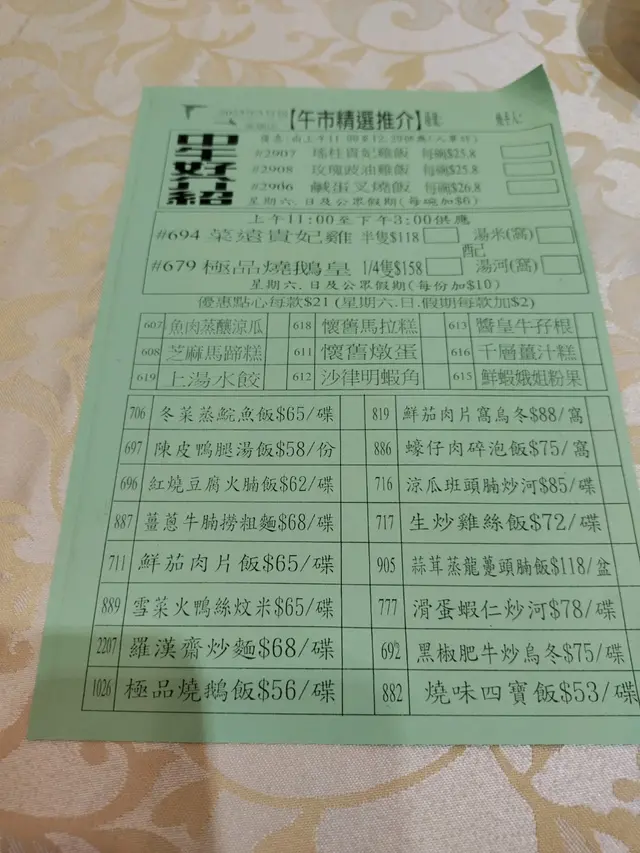 【午市精選推介】
#2907 瑤柱貴妃雞飯 每碗$25.8
#2908 玫瑰豉油雞飯 每碗$25.8
#2906 鹹蛋叉燒飯 每碗$26.8
星期六.日及公眾假期(每碗加$6)
上午11:00至下午3:00供應
#694 菜遠貴妃雞 半隻$118 湯米(窩)
配
#679 極品燒鵝皇 1/4隻$158 湯河(窩)
星期六.日及公眾假期(每份加$10)
優惠點心每款$21(星期六.日.假期每款加$2)
607 魚肉蒸釀涼瓜 618 懷舊馬拉糕 613 醬皇牛孖根
608 芝麻馬蹄糕 611 懷舊燉蛋 616 千層薑汁糕
619 上湯水餃 612 沙律明蝦角 615 鮮蝦娥姐粉果
706 冬菜蒸鯇魚飯$65/碟 819 鮮茄肉片窩烏冬$88/窩
697 陳皮鴨腿湯飯$58/份 886 蠔仔肉碎泡飯$75/窩
696 紅燒豆腐火腩飯$62/碟 716 涼瓜班頭腩炒河$85/碟
887 薑蔥牛腩撈粗麵$68/碟 717 生炒雞絲飯$72/碟
711 鮮茄肉片飯$65/碟 905 蒜茸蒸龍躉頭腩飯$118/盆
889 雪菜火鴨絲炆米$65/碟 777 滑蛋蝦仁炒河$78/碟
2207 羅漢齋炒麵$68/碟 692 黑椒肥牛炒烏冬$75/碟
1026 極品燒鵝飯$56/碟 882 燒味四寶飯$53/碟